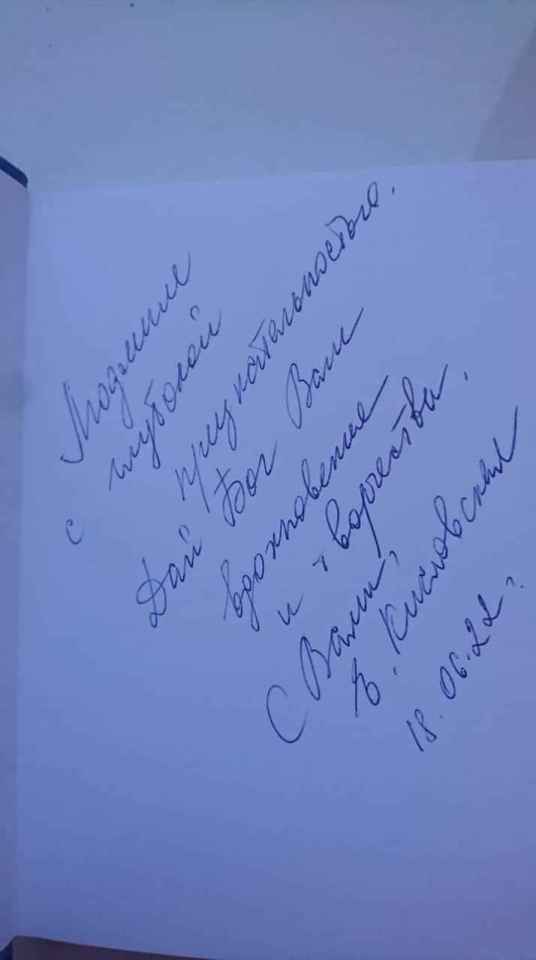 Людмиле
с глубокой
признательностью.
Дай Бог Вам
вдохновения
и творчества.
С Вами,
Е. Кисловская
18.06.22г.